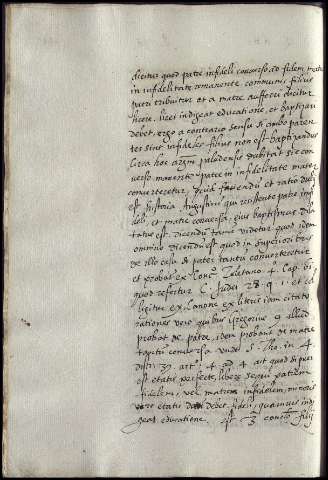 dicitur quod patre infideli converso, ad fidem, matre
in infidelitate remanente communis filius
patri tribuitur et a matre aufferri dicitur
licet indigeat educatione, et baptizari
debet, ergo a contrario sensu si ambo paren
tes sint infideles filius non est baptizandus
Circa hoc Paludensis dubitat si e con
verso manente patre in infidelitate mater
converteretur, quid faciendu et ratio dubii
est historia Augustini qui resistente patre infi
deli, et matre conversa, eius baptismus dila
tatus est. dicendu tamen videtur quod idem
omnino dicendu est quod in superiori
de illo casu si pater tantu converteretur
et probat ex Conco Toletano 4. Cap.
quod refertur C. Judei 28. q. 1. et col
ligitur ex Canone ex literis idem citato
rationes vero quibus Gregorius 9 illud
probat de patre, idem probant de matre
tantu conversa unde S. Tho. in 4.
disti 39 art 4 ad 4 ait quod si pueri
est etatis perfecte, libere sequi patrem
fidelem, vel matrem infidelem, in minori
vero etatis dari debet fideli, quamvis indi
geat educatione. 3 filii